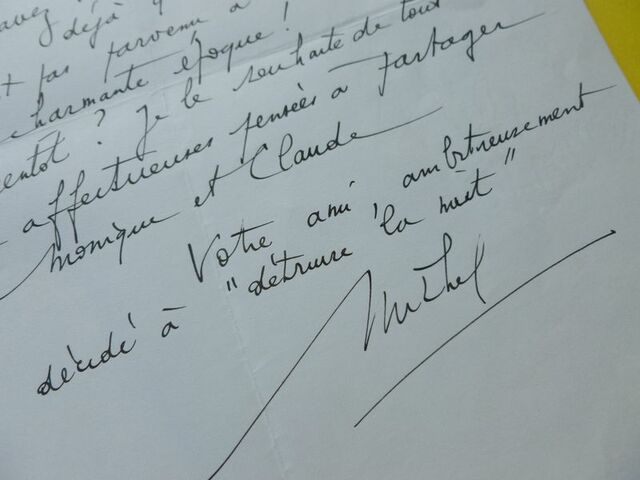 avez
déjà
pas parvenu à
charmante époque !
entôt ? Je le souhaite de tout
affectueuses pensées à partager
Monique et Claude
Votre ami, ambitieusement
décidé à "détruire la nuit"
Michel